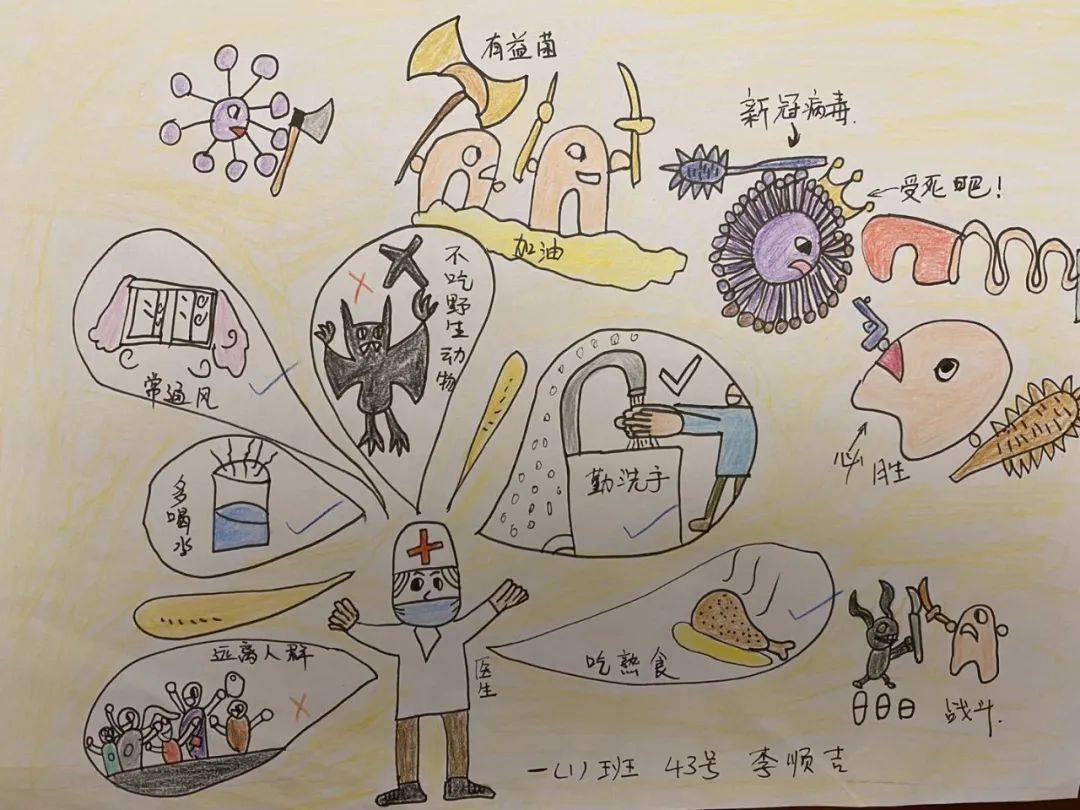 有益菌
新冠病毒.
受死吧!
加油
不吃野生动物
常通风
勤洗手
必胜
多喝水
远离人群
医生
吃熟食
战斗.
一(1)班 43号 李顺吉